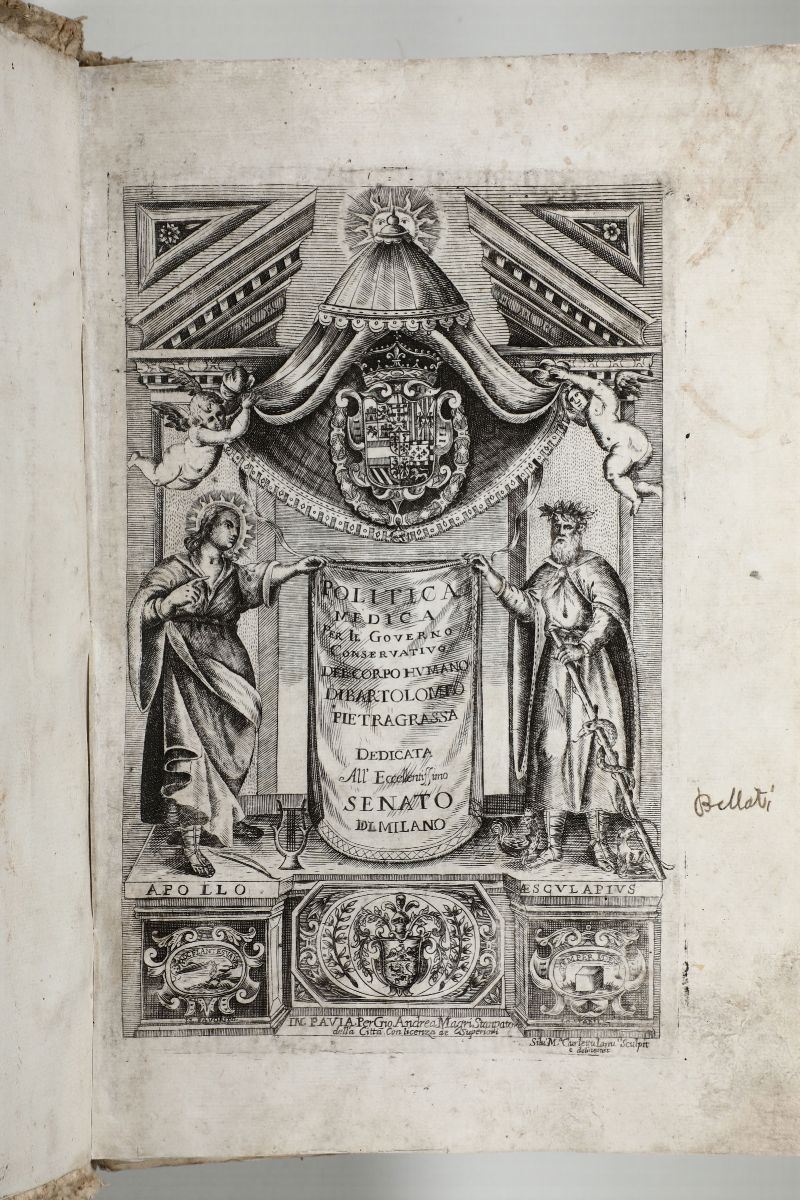 POLITICA
MEDICA
PER IL GOVERNO
CONSERVATIVO
DEL CORPO HVMANO
DI BARTOLOMEO
PIETRAGRASSA
DEDICATA
All' Eccellentissimo
SENATO
DI MILANO
APOLLO.
ÆSCULAPIUS
IN PAVIA Per Gio Andrea Magri Stampator
della Città Con licenza de Superiori
Sculpit
Bellati